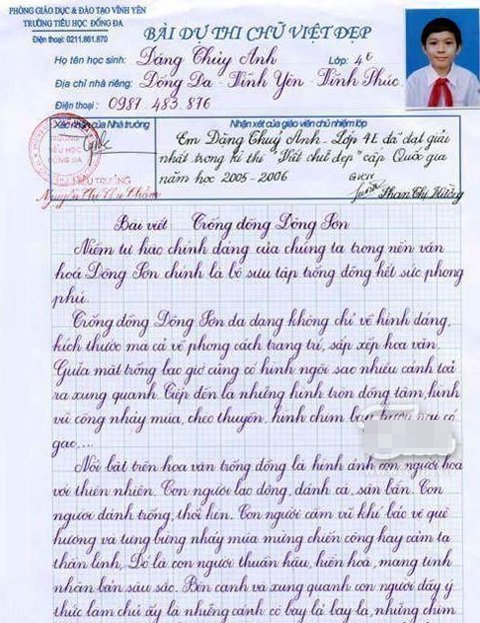 PHÒNG GIÁO DỤC & ĐÀO TẠO VĨNH YÊN
TRƯỜNG TIỂU HỌC ĐỐNG ĐA
Điện thoại: 0211.861.870
BÀI DỰ THI CHỮ VIỆT ĐẸP
Họ tên học sinh: Dáng Thủy Anh Lớp: 4E
Địa chỉ nhà riêng: Dống Da - Vĩnh Yên - Vĩnh Phúc
Điện thoại: 0987 483 876
Xác nhận của Nhà trường
Nhận xét của giáo viên chủ nhiệm lớp
Em Dặng Thuỷ Anh - Lớp 4E đã đạt giải
nhất trong kì thi "Viết chữ đẹp" cấp Quốc gia
năm học 2005 - 2006
GVCN
HIỆU TRƯỞNG
Phan Thị Hường
Bài viết Trống đồng Đông Sơn
Niềm tự hào chính đáng của chúng ta trong nền văn
hoá Đông Sơn chính là bộ sưu tập trống đồng hết sức phong
phú.
Trống đồng Đông Sơn đa dạng không chỉ về hình dáng,
kích thước mà cả về phong cách trang trí, sắp xếp hoa văn.
Giữa mặt trống bao giờ cũng có hình ngôi sao nhiều cánh toả
ra xung quanh. Tiếp đến là những hình tròn đồng tâm, hình
vũ công nhảy múa, chèo thuyền, hình chim
gạc....
Nổi bật trên hoa văn trống đồng là hình ảnh con người hoà
với thiên nhiên. Con người lao động, đánh cá, săn bắn. Con
người đánh trống, thổi kèn. Con người cầm vũ khí bảo vệ quê
hương và tưng bừng nhảy múa mừng chiến công hay cảm tạ
thần linh. Đó là con người thuần hậu, hiền hoà, mang tính
nhân bản sâu sắc. Bên cạnh và xung quanh con người đầy ý
thức làm chủ ấy là những cánh cò bay lả bay la, những chim